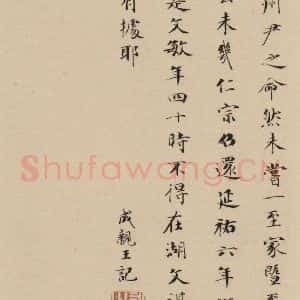 州尹之命然未嘗一至家暨至
未幾仁宗還延祐六年
是文敏年四十時不得在湖文
有據耶
成親王記
Shufawang.CN